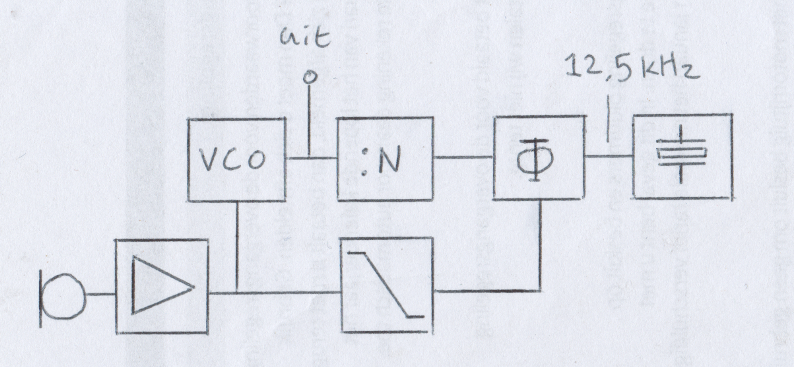 uit
12,5 kHz
VCO
:N
Φ